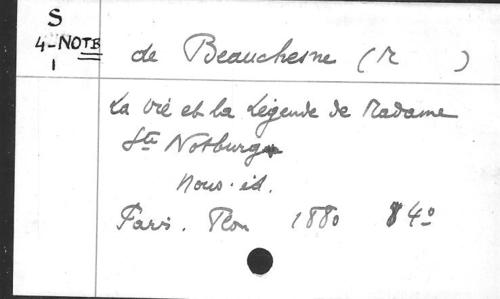 S
4-NOTB
1
de Beauchesne (M )
La vie et la Légende de Madame
Ste Notburg
Nouv. éd.
Paris. Plon 1880 4°